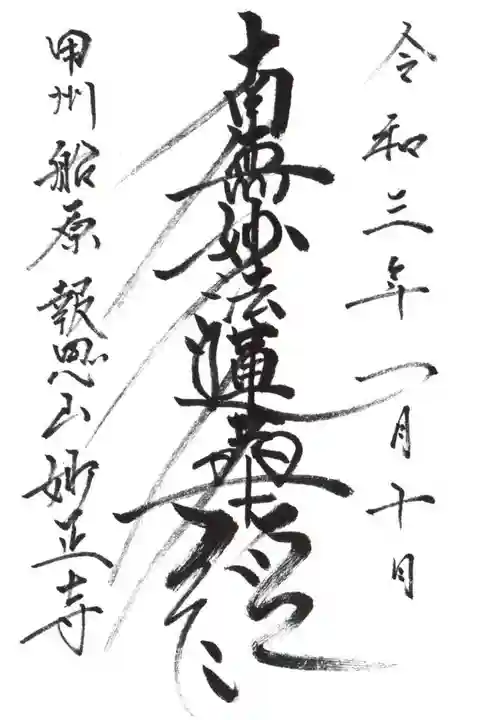 令和三年一月十日
南無妙法蓮華経
甲州船原報恩山妙正寺